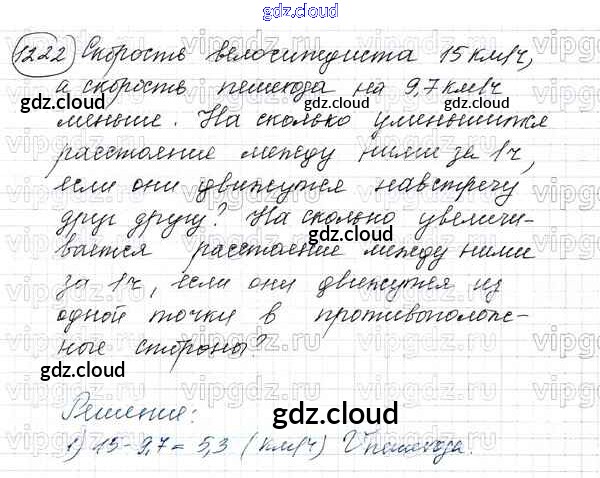 gdz.cloud
1222) Скорость велосипедиста 15 км/ч,
а скорость пешехода на 9,7 км/ч
gdz.cloud gdz.cloud
меньше. На сколько уменьшится
расстояние между ними за 1ч,
если они движутся навстречу
друг другу? На сколько увеличи-
gdz.cloud
вается расстояние между ними
за 1ч, если они движутся из
одной точки в противополож-
ные стороны?
gdz.cloud gdz.cloud
Решение:
gdz.cloud
1) 15 - 9,7 = 5,3 (км/ч) V пешехода.